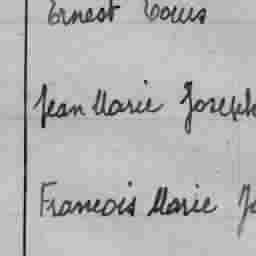 Ernest Louis
Jean Marie Joseph
Francois Marie